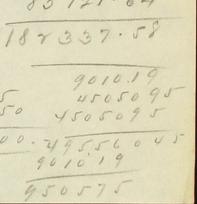 83 121.64
182337.58
9010.19
5 4505095
50 4505095
00. 4955604 5
9010 19
950575